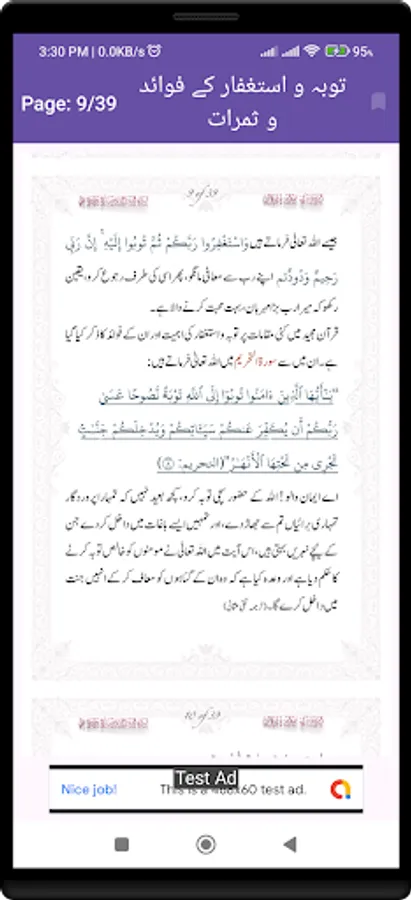 3:30 PM | 0.0KB/s
95%
Page: 9/39
توبہ و استغفار کے فوائد
و ثمرات
9 of 39
جیسے اللہ تعالیٰ فرماتے ہیں وَاسْتَغْفِرُوا رَبَّكُمْ ثُمَّ تُوبُوا إِلَيْهِ ۚ إِنَّ رَبِّي
رَحِيمٌ وَدُودٌ تم اپنے رب سے معافی مانگو، پھر اسی کی طرف رجوع کرو، یقین
رکھو کہ میرا رب بڑا مہربان، بہت محبت کرنے والا ہے۔
قرآن مجید میں کئی مقامات پر توبہ و استغفار کی اہمیت اور ان کے فوائد کا ذکر کیا گیا
ہے۔ ان میں سے سورۃ التحریم میں اللہ تعالیٰ فرماتے ہیں:
"يَـٰٓأَيُّهَا ٱلَّذِينَ ءَامَنُوا تُوبُوٓا إِلَى ٱللَّهِ تَوْبَةً نَّصُوحًا عَسَىٰ
رَبُّكُمْ أَن يُكَفِّرَ عَنكُمْ سَيِّـَٔاتِكُمْ وَيُدْخِلَكُمْ جَنَّـٰتٍ
تَجْرِى مِن تَحْتِهَا ٱلْأَنْهَـٰرُ" (التحریم: ۸)
اے ایمان والو! اللہ کے حضور سچی توبہ کرو، کچھ بعید نہیں کہ تمہارا پروردگار
تمہاری برائیاں تم سے جھاڑ دے، اور تمہیں ایسے باغات میں داخل کر دے جن
کے نیچے نہریں بہتی ہیں، اس آیت میں اللہ تعالیٰ نے مومنوں کو خالص توبہ کرنے
کا حکم دیا ہے اور وعدہ کیا ہے کہ وہ ان کے گناہوں کو معاف کر کے انہیں جنت
میں داخل کرے گا۔ (ترجمہ تقی عثمانی)
10 of 39
Test Ad
Nice job!
This is a 468x60 test ad.